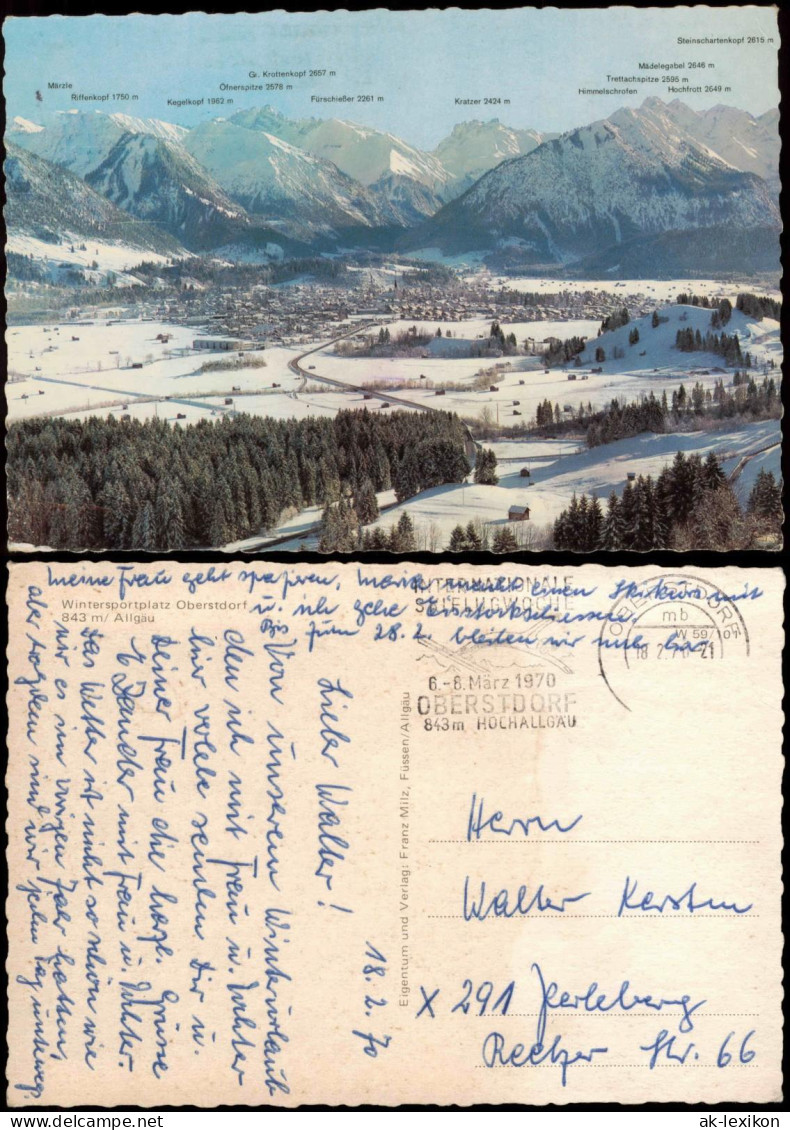 Steinschartenkopf 2615 m
Mädelegabel 2646 m
Gr. Krottenkopf 2657 m
Trettachspitze 2595 m
Märzle
Öfnerspitze 2578 m
Himmelschrofen
Hochfrott 2649 m
Riffenkopf 1750 m
Kegelkopf 1962 m
Fürschießer 2261 m
Kratzer 2424 m
Wintersportplatz Oberstdorf
843 m/ Allgäu
INTERNATIONALE
SKIFLUGWOCHE
6.-8. März 1970
OBERSTDORF
843m HOCHALLGÄU
OBERSTDORF
mb
W 59/10
18.2.70-21
Eigentum und Verlag: Franz Milz, Füssen/Allgäu
18. 2. 70
Lieber Walter!
Von unserem Winterurlaub
den ich mit Frau u. Tochter
hier verlebe senden Dir u.
Deiner Frau die herzl. Grüsse
mit Frau u. Tochter.
Das Wetter ist nicht so schön wie
wir es im vorigen Jahr hatten,
aber trotzdem sind wir jeden Tag unterwegs
meine Frau geht spazieren, macht einen Skikurs mit
u. ich gehe Eisstockschiessen.
Bis zum 28. 2. bleiben wir noch hier
Herrn
Walter Kersten
X 291 Perleberg
Reetzer Str. 66
ak-lexikon